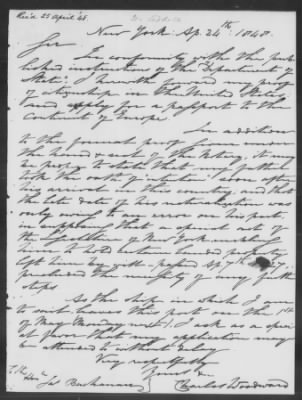 Rec'd 25 April '48.
New York: Ap. 24th: 1848.
Sir
In conformity with the pub-
lished instructions of the Department of
State; I herewith forward my proof
of citizenship in the United States,
and apply for a passport to the
Continent of Europe.
In addition
to the formal proof given under
the hand & seal of the Notary, it may
be proper to state that my father
took the oath of intention soon after
his arrival in this country, and that
the late date of his naturalization was
only owing to an error on his part,
in supposing that a special act of
the Legislature of New York
precluded the necessity of any further
steps.
As the ship in which I am
to sail leaves this port on the 1st
of May (Monday next) I ask as a spec-
ial favor that my application may
be attended to without delay.
Very respectfully
Yours &c
Charles Woodward
To the
Hon. Jas Buchanan